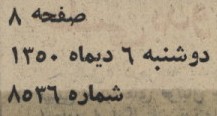 صفحه ۸
دوشنبه ۶ دیماه ۱۳۵۰
شماره ۸۵۳۶